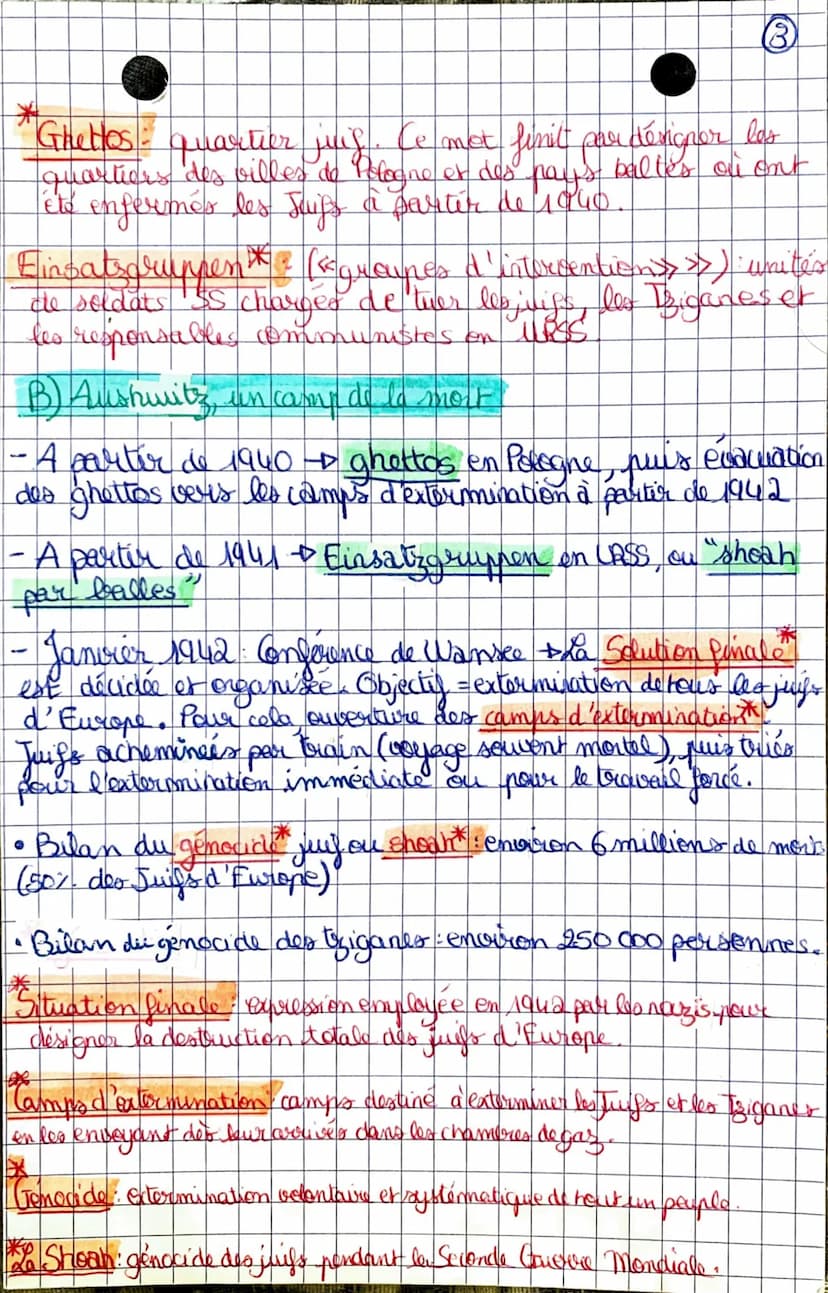 3
*Ghettos : quartier juif. Ce mot finit par désigner les
quartiers des villes de Pologne et des pays baltes où ont
été enfermés les Juifs à partir de 1940.
Einsatzgruppen* : («groupes d'intervention» ») : unités
de soldats SS chargés de tuer les juifs, les Tziganes et
les responsables communistes en URSS.
B) Aushwitz, un camp de la mort
- A partir de 1940 → ghettos en Pologne, puis évacuation
des ghettos vers les camps d'extermination à partir de 1942
- A partir de 1941 → Einsatzgruppen en URSS, ou "shoah
par balles"
- Janvier 1942 : Conférence de Wansee → La Solution finale*
est décidée et organisée. Objectif = extermination de tous les juifs
d'Europe. Pour cela, ouverture des camps d'extermination*.
Juifs acheminés par train (voyage souvent mortel), puis triés
pour l'extermination immédiate ou pour le travail forcé.
• Bilan du génocide* juif ou shoah* : environ 6 millions de mort
(50% des Juifs d'Europe)
• Bilan du génocide des tziganes : environ 250 000 personnes.
*Situation finale : expression employée en 1942 par les nazis pour
désigner la destruction totale des juifs d'Europe.
*Camps d'extermination : camps destiné à exterminer les Juifs et les Tziganes
en les envoyant dès leur arrivée dans les chambres de gaz.
*Génocide : extermination volontaire et systématique de tout un peuple.
*La Shoah : génocide des juifs pendant la Seconde Guerre Mondiale.